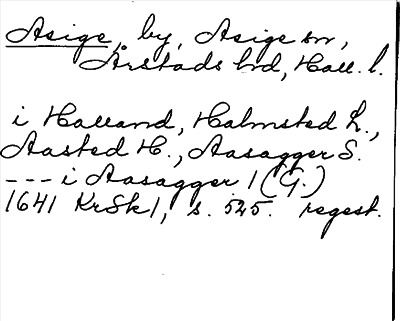 Asige, by, Asige sn,
Årstads hd, Hall. l.
i Halland, Halmsted L.,
Aasted H., Aasagger S.
--- i Aasagger 1 (G.)
1641 KrSk1, s. 525. regest.